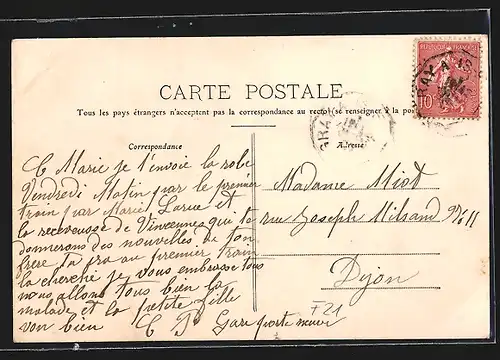 CARTE POSTALE
Tous les pays étrangers n'acceptent pas la correspondance au recto, se renseigner à la pos
Correspondance
Adresse
REPUBLIQUE FRANÇAISE
10
GRAY
C Marie je t'envoie la robe
Vendredi Matin par le premier
train par Marie et
la receveuse de Vincennes qui te
donnerons des nouvelles de ton
frère ta pro au premier train
la cherche je vous embrasse tous
nous allons tous bien la
malade et la petite fille
von bien
C P Gare porte neuve
Madame Miot
rue Joseph Milsand No 11
Dijon
F21